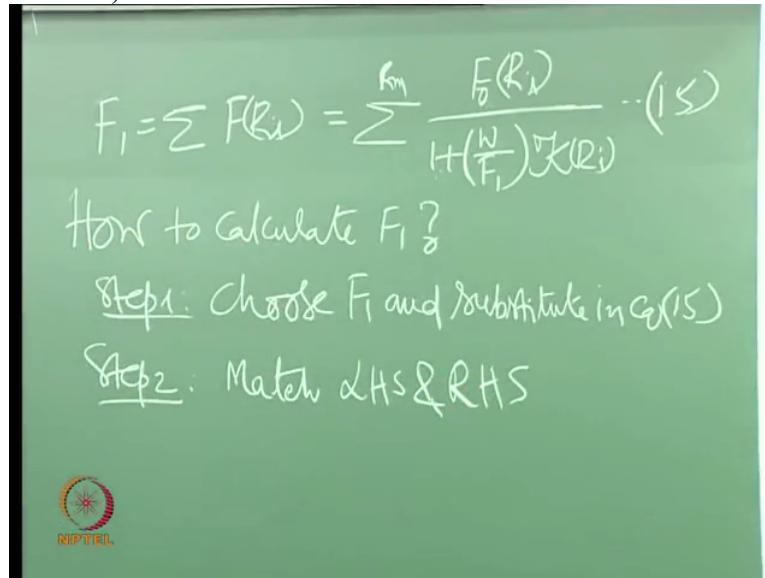 F₁ = Σ F(Ri) = Σ^{Rm} F₀(Ri) / (1+(W/F₁) 𝒦(Ri)) --(15)
How to calculate F₁?
Step1: Choose F₁ and substitute in Eq(15)
Step2: Match LHS & RHS
NPTEL